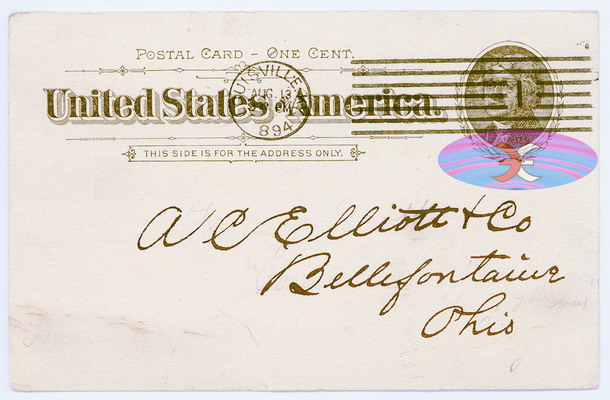 POSTAL CARD – ONE CENT.
United States of America.
AUG. 13
894
THIS SIDE IS FOR THE ADDRESS ONLY.
A C Elliott & Co
Bellefontaine
Ohio